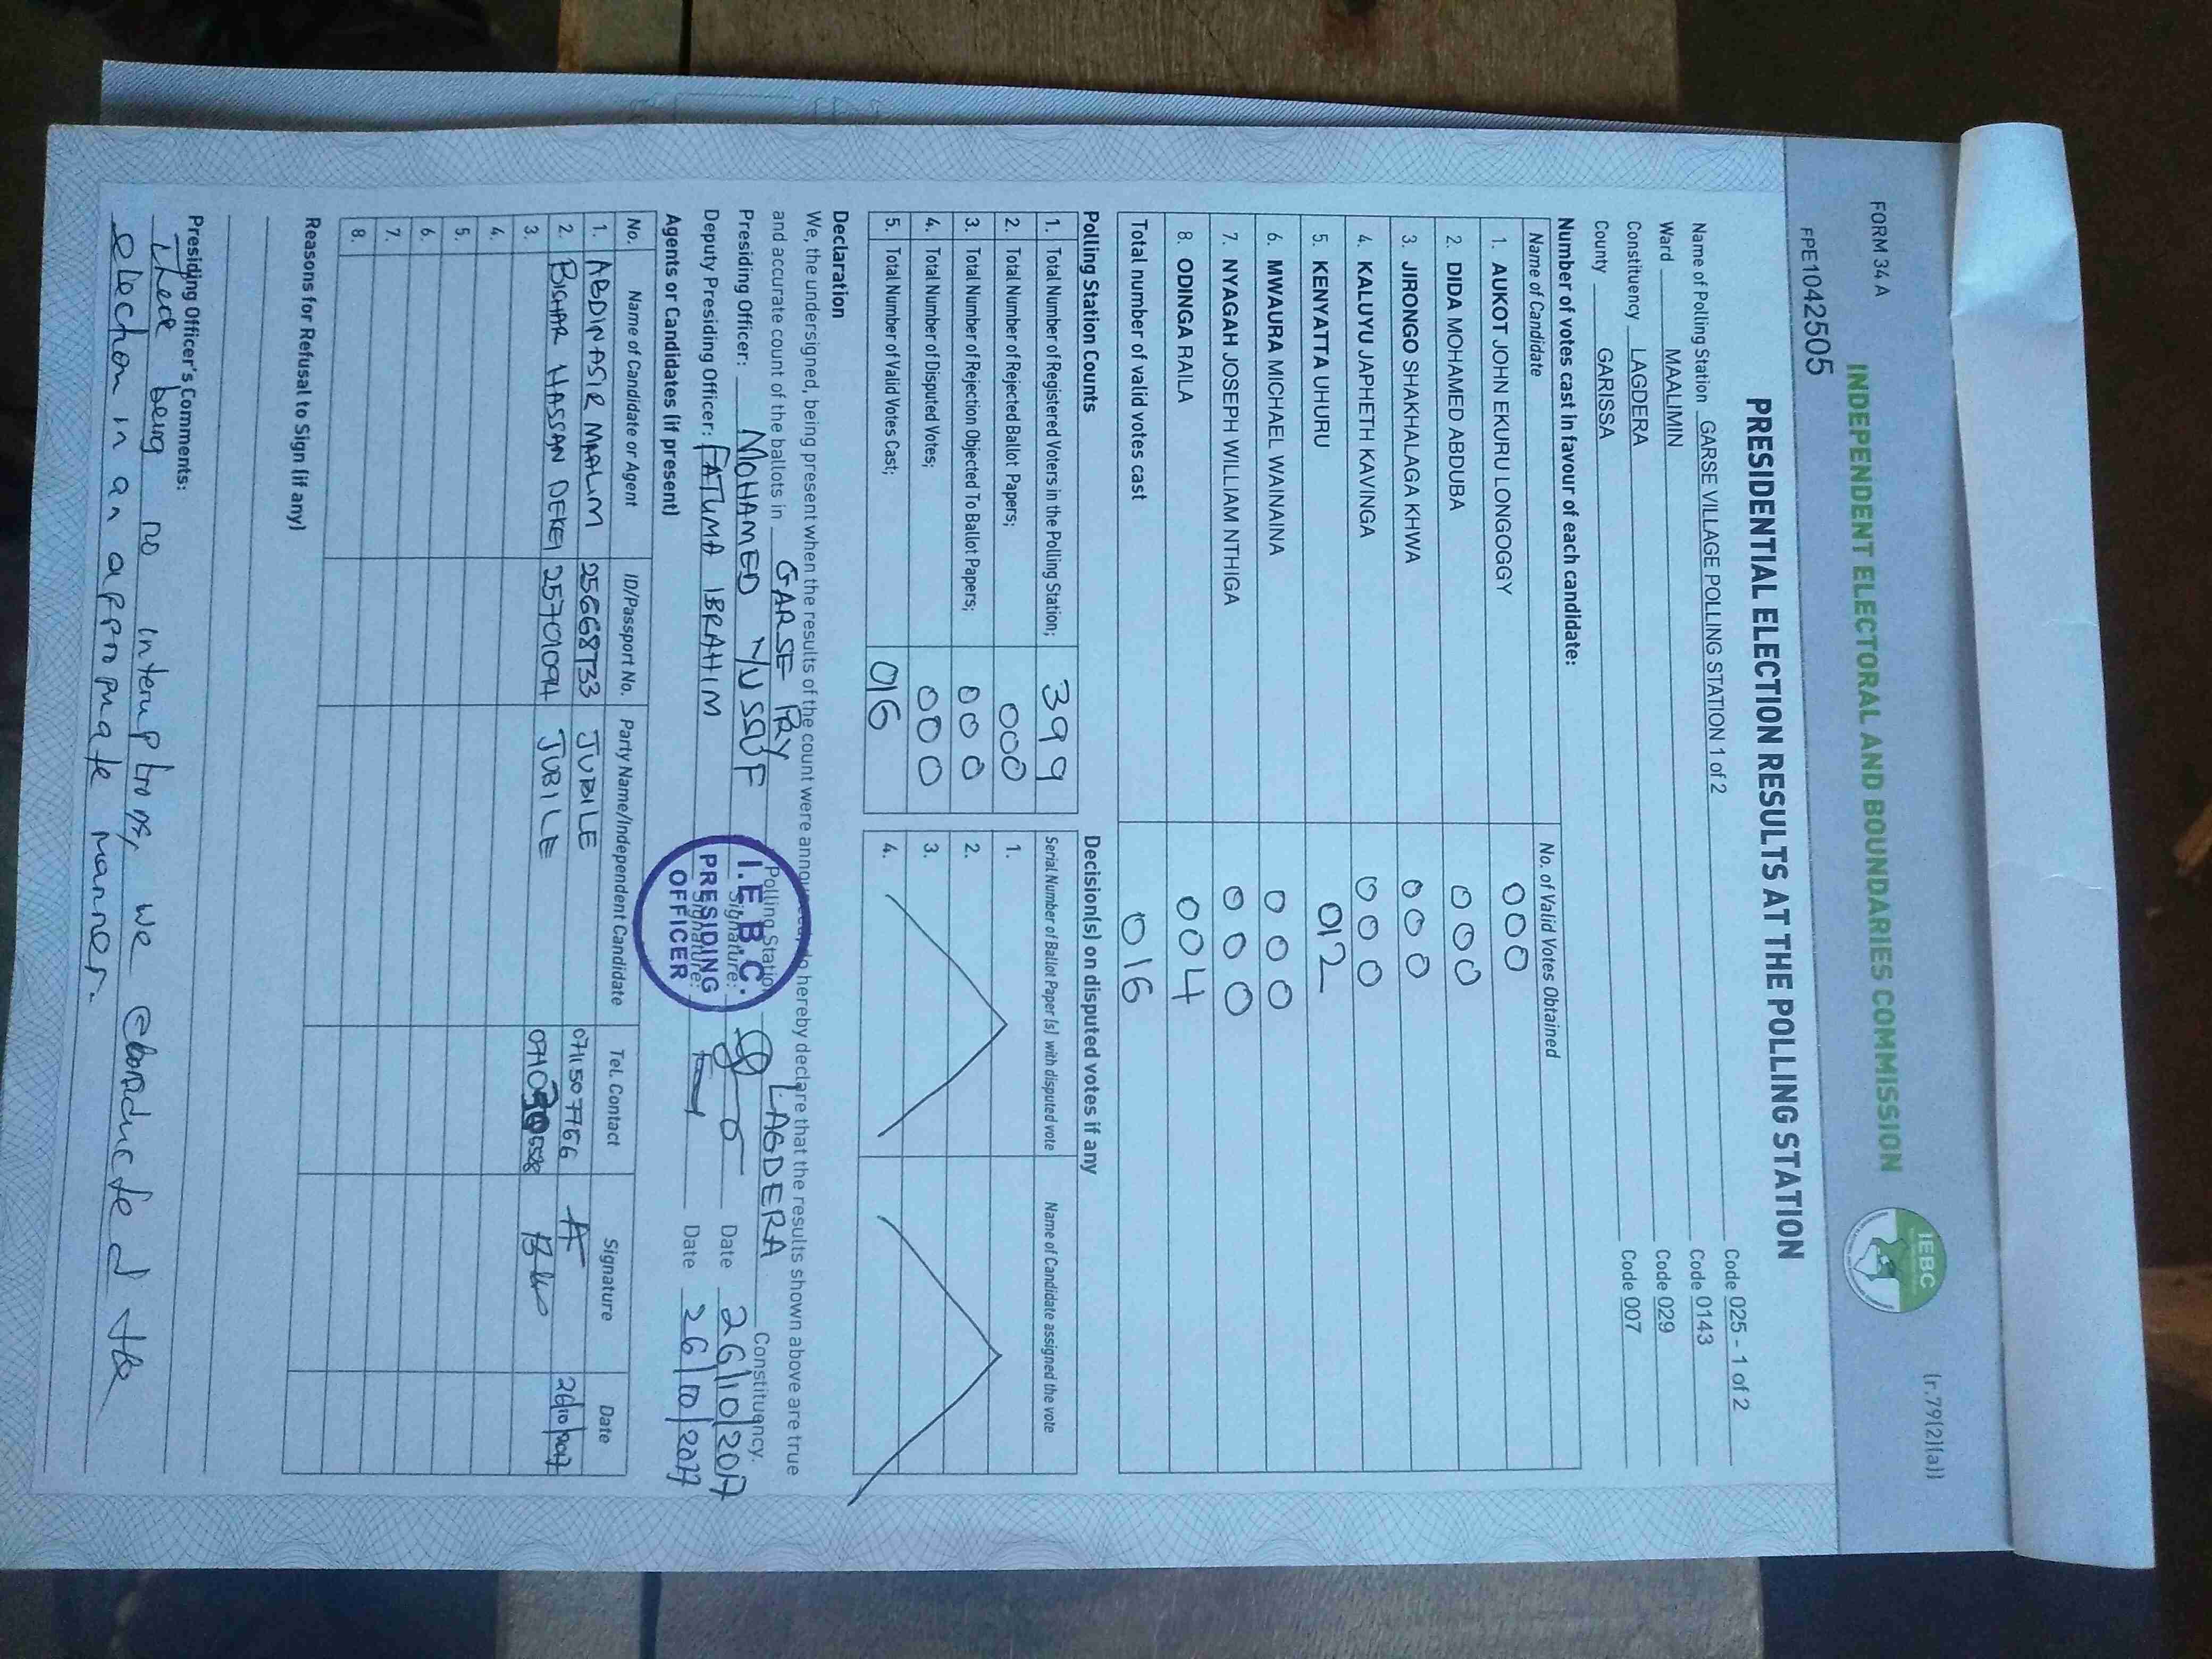 FORM 34 A
(r.79(2)(a))
INDEPENDENT ELECTORAL AND BOUNDARIES COMMISSION
IEBC
FPE1042505
PRESIDENTIAL ELECTION RESULTS AT THE POLLING STATION
Name of Polling Station GARSE VILLAGE POLLING STATION 1 of 2 Code 025 - 1 of 2
Ward MAALIMIN Code 0143
Constituency LAGDERA Code 029
County GARISSA Code 007
Number of votes cast in favour of each candidate:
Name of Candidate No. of Valid Votes Obtained
1. AUKOT JOHN EKURU LONGOGGY 000
2. DIDA MOHAMED ABDUBA 000
3. JIRONGO SHAKHALAGA KHWA 000
4. KALUYU JAPHETH KAVINGA 000
5. KENYATTA UHURU 012
6. MWAURA MICHAEL WAINAINA 000
7. NYAGAH JOSEPH WILLIAM NTHIGA 000
8. ODINGA RAILA 004
Total number of valid votes cast 016
Polling Station Counts
1. Total Number of Registered Voters in the Polling Station; 399
2. Total Number of Rejected Ballot Papers; 000
3. Total Number of Rejection Objected To Ballot Papers; 000
4. Total Number of Disputed Votes; 000
5. Total Number of Valid Votes Cast; 016
Decision(s) on disputed votes if any
Serial Number of Ballot Paper (s) with disputed vote Name of Candidate assigned the vote
1.
2.
3.
4.
Declaration
We, the undersigned, being present when the results of the count were announced, do hereby declare that the results shown above are true
and accurate count of the ballots in GARSE PRY Polling Station LAGDERA Constituency.
Presiding Officer: MOHAMED YUSSUF Signature: Date 26/10/2017
Deputy Presiding Officer: FATUMA IBRAHIM Signature: Date 26/10/2017
I.E.B.C.
PRESIDING
OFFICER
Agents or Candidates (if present)
No. Name of Candidate or Agent ID/Passport No. Party Name/Independent Candidate Tel. Contact Signature Date
1. ABDINASIR MAALIM 25668733 JUBILE 0711507766 A 26/10/2017
2. BISHAR HASSAN DEKEI 25701094 JUBILE
3.
4.
5.
6.
7.
8.
Reasons for Refusal to Sign (if any)
Presiding Officer's Comments:
There being no interuptions, we conducted the
election in an appropriate manner.